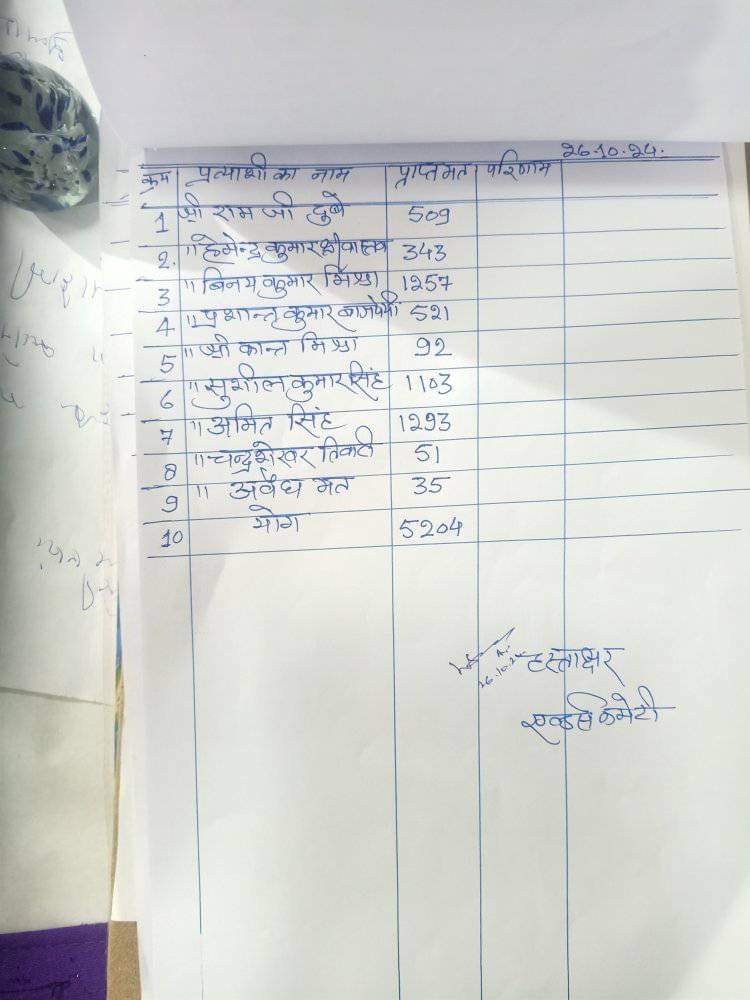 26.10.24.
क्रम प्रत्याशी का नाम प्राप्त मत परिणाम
1 श्री राम जी दुबे 509
2. " हेमेन्द्र कुमार श्रीवास्तव 343
3 " विनय कुमार मिश्रा 1257
4 " प्रशान्त कुमार बाजपेयी 521
5 " श्री कान्त मिश्रा 92
6 " सुशील कुमार सिंह 1103
7 " अमित सिंह 1293
8 " चन्द्रशेखर तिवारी 51
9 " अवैध मत 35
10 योग 5204
26.10.24
हस्ताक्षर
एल्डर्स कमेटी